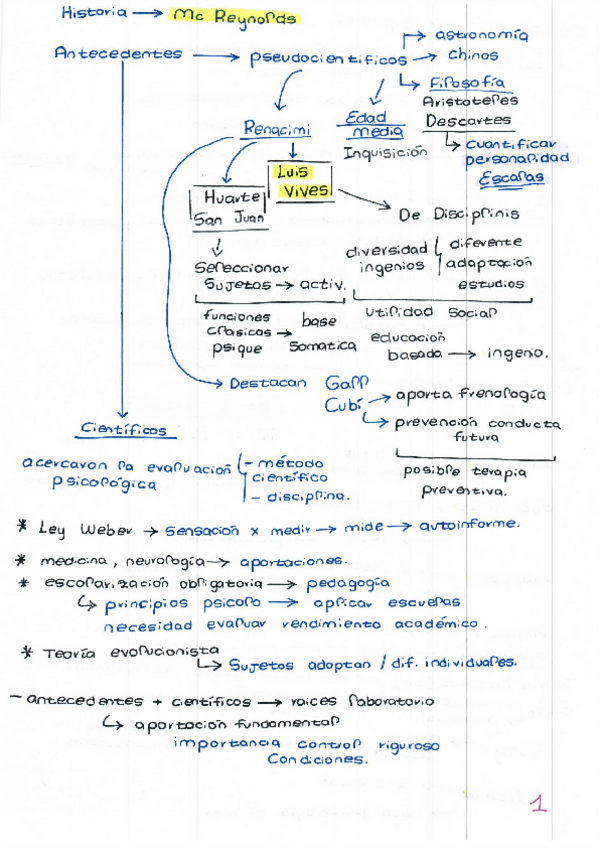 Historia → Mc Reynolds
Antecedentes → pseudocientificos → astronomía
→ chinos
↳ Filosofía
Aristoteles
Descartes
↳ cuantificar
personalidad
Escalas
Edad
media
Inquisición
Renacimi
Luis
Vives
Huarte
San Juan
De Disciplinis
diversidad
ingenios
diferente
adaptación
estudios
Seleccionar
Sujetos → activ.
utilidad social
funciones
clasicas → base
psique somatica
educación
basada → ingenio.
Destacan Gall
Cubí → aporta frenología
↳ prevención conducta
futura
posible terapia
preventiva.
Científicos
acercaron la evaluación
psicológica
- método
científico
- disciplina.
* Ley Weber → sensación x medir → mide → autoinforme.
* medicina, neurología → aportaciones.
* escolarización obligatoria → pedagogía
↳ principios psicolo → aplicar escuelas
necesidad evaluar rendimiento académico.
* Teoría evolucionista
↳ Sujetos adaptan / dif. individuales.
- antecedentes + científicos → raices laboratorio
↳ aportación fundamental
importancia control riguroso
Condiciones.
1